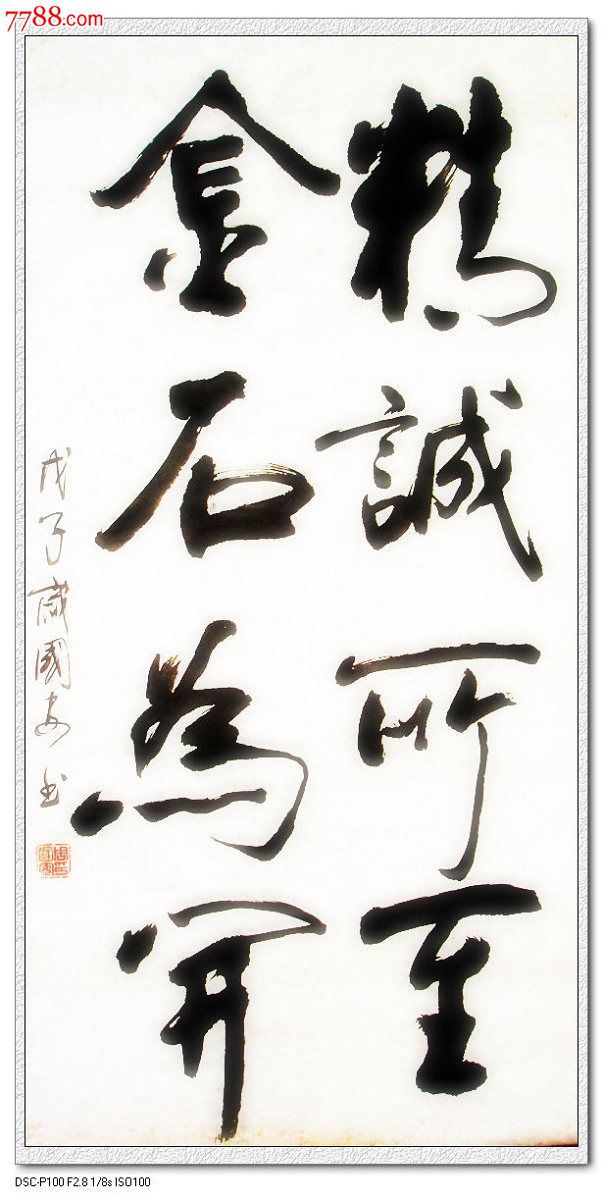 7788.com
精誠所至
金石為開
戊子歲國安书
DSC-P100 F2.8 1/8s ISO100